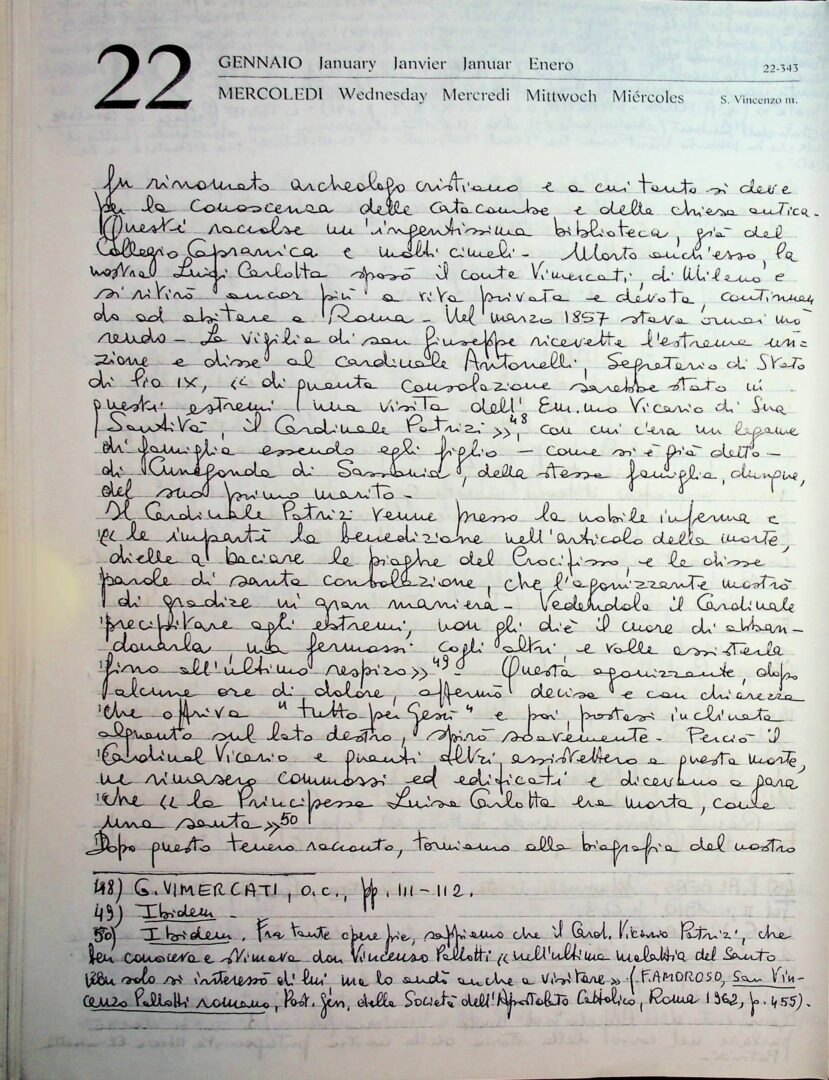 22
GENNAIO January Janvier Januar Enero
22-343
MERCOLEDI Wednesday Mercredi Mittwoch Miércoles
S. Vincenzo m.
fu rinomato archeologo cristiano e a cui tanto si deve
per la conoscenza delle catacombe e della chiesa antica.
Questi raccolse un'ingentissima biblioteca, già del
Collegio Capranica e molti cimeli - Morto anch'esso, la
nostra Luigi Carlotta sposò il conte Vimercati, di Milano e
si ritirò ancor più a vita privata e devota, continuan
do ad abitare a Roma - Nel marzo 1857 stava ormai mo
rendo - La vigilia di san Giuseppe ricevette l'estrema un=
zione e disse al cardinale Antonelli, Segretario di Stato
di Pio IX, « di quanta consolazione sarebbe stato in
questi estremi una visita dell'Em.mo Vicario di Sua
Santità, il Cardinale Patrizi »48, con cui c'era un legame
di famiglia essendo egli figlio - come si è già detto -
di Cunegonda di Sassonia, della stessa famiglia, dunque,
del suo primo marito -
Il Cardinale Patrizi venne presso la nobile inferma e
« le impartì la benedizione nell'articolo della morte,
dielle a baciare le piaghe del Crocifisso, e le disse
parole di santa consolazione, che l'agonizzante mostrò
di gradire in gran maniera - Vedendola il Cardinale
precipitare agli estremi, non gli diè il cuore di abban-
donarla, ma fermossi cogli altri, e volle assisterla
fino all'ultimo respiro »49 - Questa agonizzante, dopo
alcune ore di dolore, affermò decisa e con chiarezza
che offriva "tutto per Gesù" e poi, postasi inclinata
alquanto sul lato destro, spirò soavemente - Perciò il
Cardinal Vicario e quanti altri assistettero a questa morte,
ne rimasero commossi ed edificati e dicevano a gara
che « la Principessa Luisa Carlotta era morta, come
una santa »50
Dopo questo tenero racconto, torniamo alla biografia del nostro
48) G. VIMERCATI, o.c., pp. 111-112.
49) Ibidem -
50) Ibidem. Fra tante opere pie, sappiamo che il Card. Vicario Patrizi, che
ben conosceva e stimava don Vincenzo Pallotti « nell'ultima malattia del Santo
non solo si interessò di lui, ma lo andò anche a visitare » (F. AMOROSO, San Vin-
cenzo Pallotti romano, Post. Gen. della Società dell'Apostolato Cattolico, Roma 1962, p. 455).